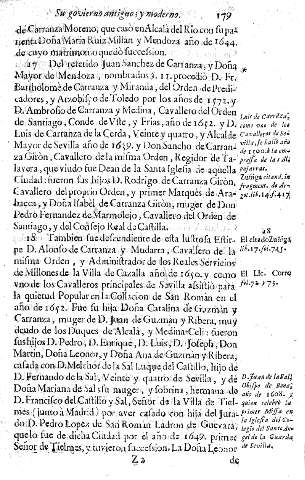 Su govierno antiguo, y moderno. 179
de Carranza Moreno, que casò en Alcalà del Rio con su parienta
Doña Maria Ruiz Millan y Mendoza año de 1644.
de cuyo matrimonio quedò succession.
17 Del referido Juan Sanchez de Carranza, y Doña
Mayor de Mendoza, nombrados §. 11. procediò D. Fr.
Bartholomè de Carranza y Miranda, del Orden de Predicadores,
y Arzobispo de Toledo por los años de 1572. y
D. Ambrosio de Carranza y Medina, Cavallero del Orden
de Santiago, Conde de Vite, y Frias, año de 1652. y D.
Luis de Carranza de la Cerda, Veinte y quatro, y Alcalde
Mayor de Sevilla año de 1639. y Don Sancho de Carranza
Giròn, Cavallero de la misma Orden, Regidor de Talavera,
que viudo fue Dean de la Santa Iglesia de aquella
Ciudad: fueron sus hijos D. Rodrigo de Carranza Giròn,
Cavallero del proprio Orden, y primer Marquès de
y Doña Isabèl de Carranza Giròn, muger de Don
Pedro Fernandez de Marmolejo, Cavallero del Orden de
Santiago, y del Consejo Real de Castilla.
18 Tambien fue descendiente de esta ilustrosa Estirpe
D. Alonso de Carranza y Mudarra, Cavallero de la
misma Orden, y Administrador de los Reales Servicios
de Millones de la Villa de Cazalla año de 1650. y como
vno de los Cavalleros principales de Sevilla assistiò para
la quietud Popular en la Collacion de San Romàn en el
año de 1652. Fue su hija Doña Catalina de Guzmàn y
Carranza, muger de D. Juan de Guzmàn y Ribera, muy
deudo de los Duques de Alcalà, y Medina-Celi: fueron
sus hijos D. Pedro, D. Enrique, D. Luis, D. Joseph, Don
Martin, Doña Leonor, y Doña Ana de Guzmàn y Ribera,
casada con D. Melchor de la Sal Luque del Castillo, hijo de
D. Fernando de la Sal, Veinte y quatro de Sevilla, y de
Doña Mariana de Sal su muger, y sobrina, hermana de
D. Francisco del Castillo y Sal, Señor de la Villa de Tielmes
(junto à Madrid) por aver casado con hija del Jurado
D. Pedro Lopez de San Romàn Ladron de Guevara,
que lo fue de dicha Ciudad por el año de 1649. primer
Señor de Tielmes, y tuvieron succession. La Doña Leonor
Z 2 de
como vno de los
Cavalleros de Sevilla,
18
El estado Zuñiga
El Lic. Corro
fol. 72. 173.
D. Juan de la Sal,
Obispo de Bona,
año de 1608.
primer Missa en
la Iglesia del Colegio
del Santo Angel
de la Guarda
de Sevilla.